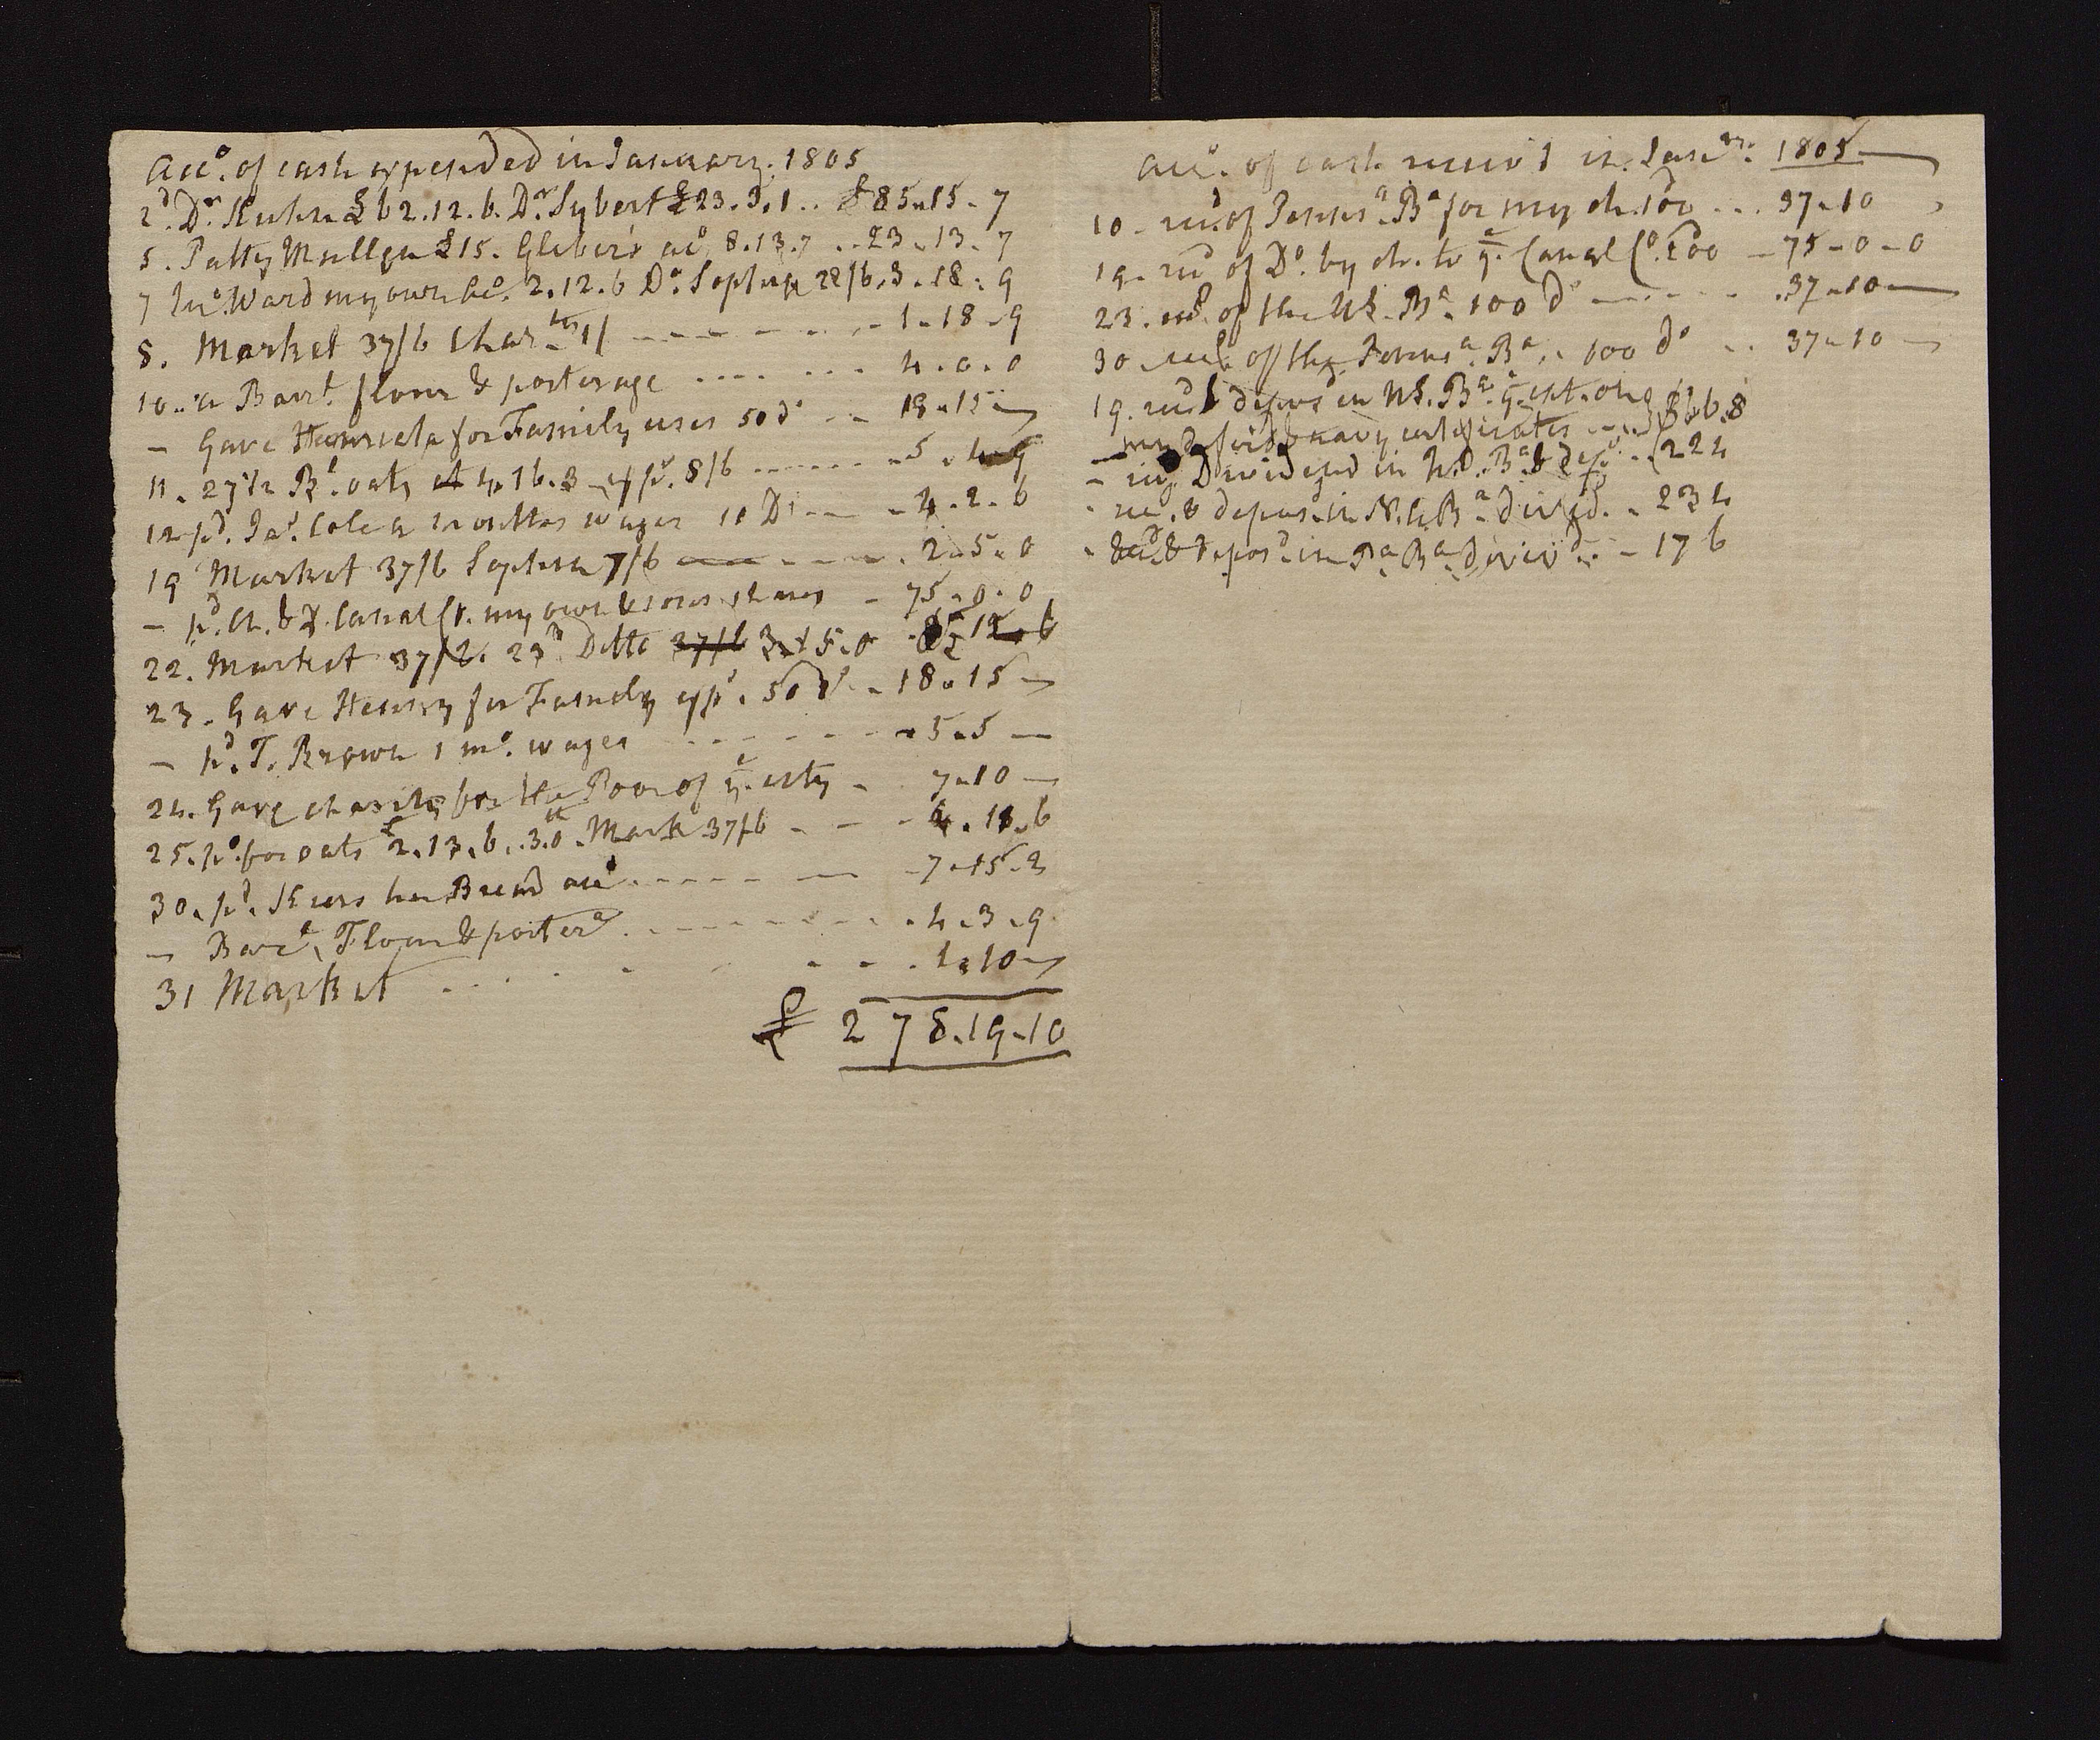 Acc.o of cash expended in January. 1805
2d. Dr. Kuhn £62.12.6. Dr. Sybert £23.3.1.. £85.15.7
5. Patty Mullen £15. Gleber's acco. 8.13.7 .. 23.13.7
7 Jno. Ward my own Acc. 2.12.6 Do. Sophia 28/6. 3.18.9
8. Market 37/6 Char.ty 1/ ---- 1.18.9
10. a Barrl. flour & porterage .... 4.0.0
— Gave Henrietta for Family uses 50 do .. 18.15—
11. 27½ Bl. oats 4.16.3 exps. 8/6 ---- 5.4.9
12 pd. Jas. Cole a months wages 11 Ds -- 4.2.6
19 Market 37/6 Sophia 7/6 ---- 2.5.0
— pd. Ch. & D. Canal Co. my own & sons shares - 75.0.0
22. Market 37/6. 23d Ditto 37/6 3.15.0 12.6
23. Gave Henry for Family exps. 50 do. - 18.15—
— pd. T. Brown 1 mo. wages ---- 5.5—
24. Gave charity for the Poor of ye. city - 7.10—
25. pd. for oats £2.13.6. 30th. Mark 37/6 - - - 4.11.6
30. pd. Kurs her Bread acct. ---- 7.15.2
— Barrl. Flour & porterа ---- 4.3.9
31 Market .... 1.10—
£ 278.19.10
Acco. of cash receiv'd in Janry. 1805—
10 - recd. of Pennsa. Ba for my ch. 100 ... 37.10
19. recd of Do. by ch. to ye. Canal Co. 200 - 75-0-0
23. recd. of the US. Ba. 100 do ---- 37.10—
30 recd. of the Pennsa. Ba.. 100 do .. 37.10—
19. recd & depos'd in US. Ba. ye. int. on
my deferd & navy certificates .... 6.8
- my Dividend in U.S. Ba & .. 224
- rec. & depos. in N.A. Ba. divid. . 234
- & deposd. in Pa. Ba. divid. - 176